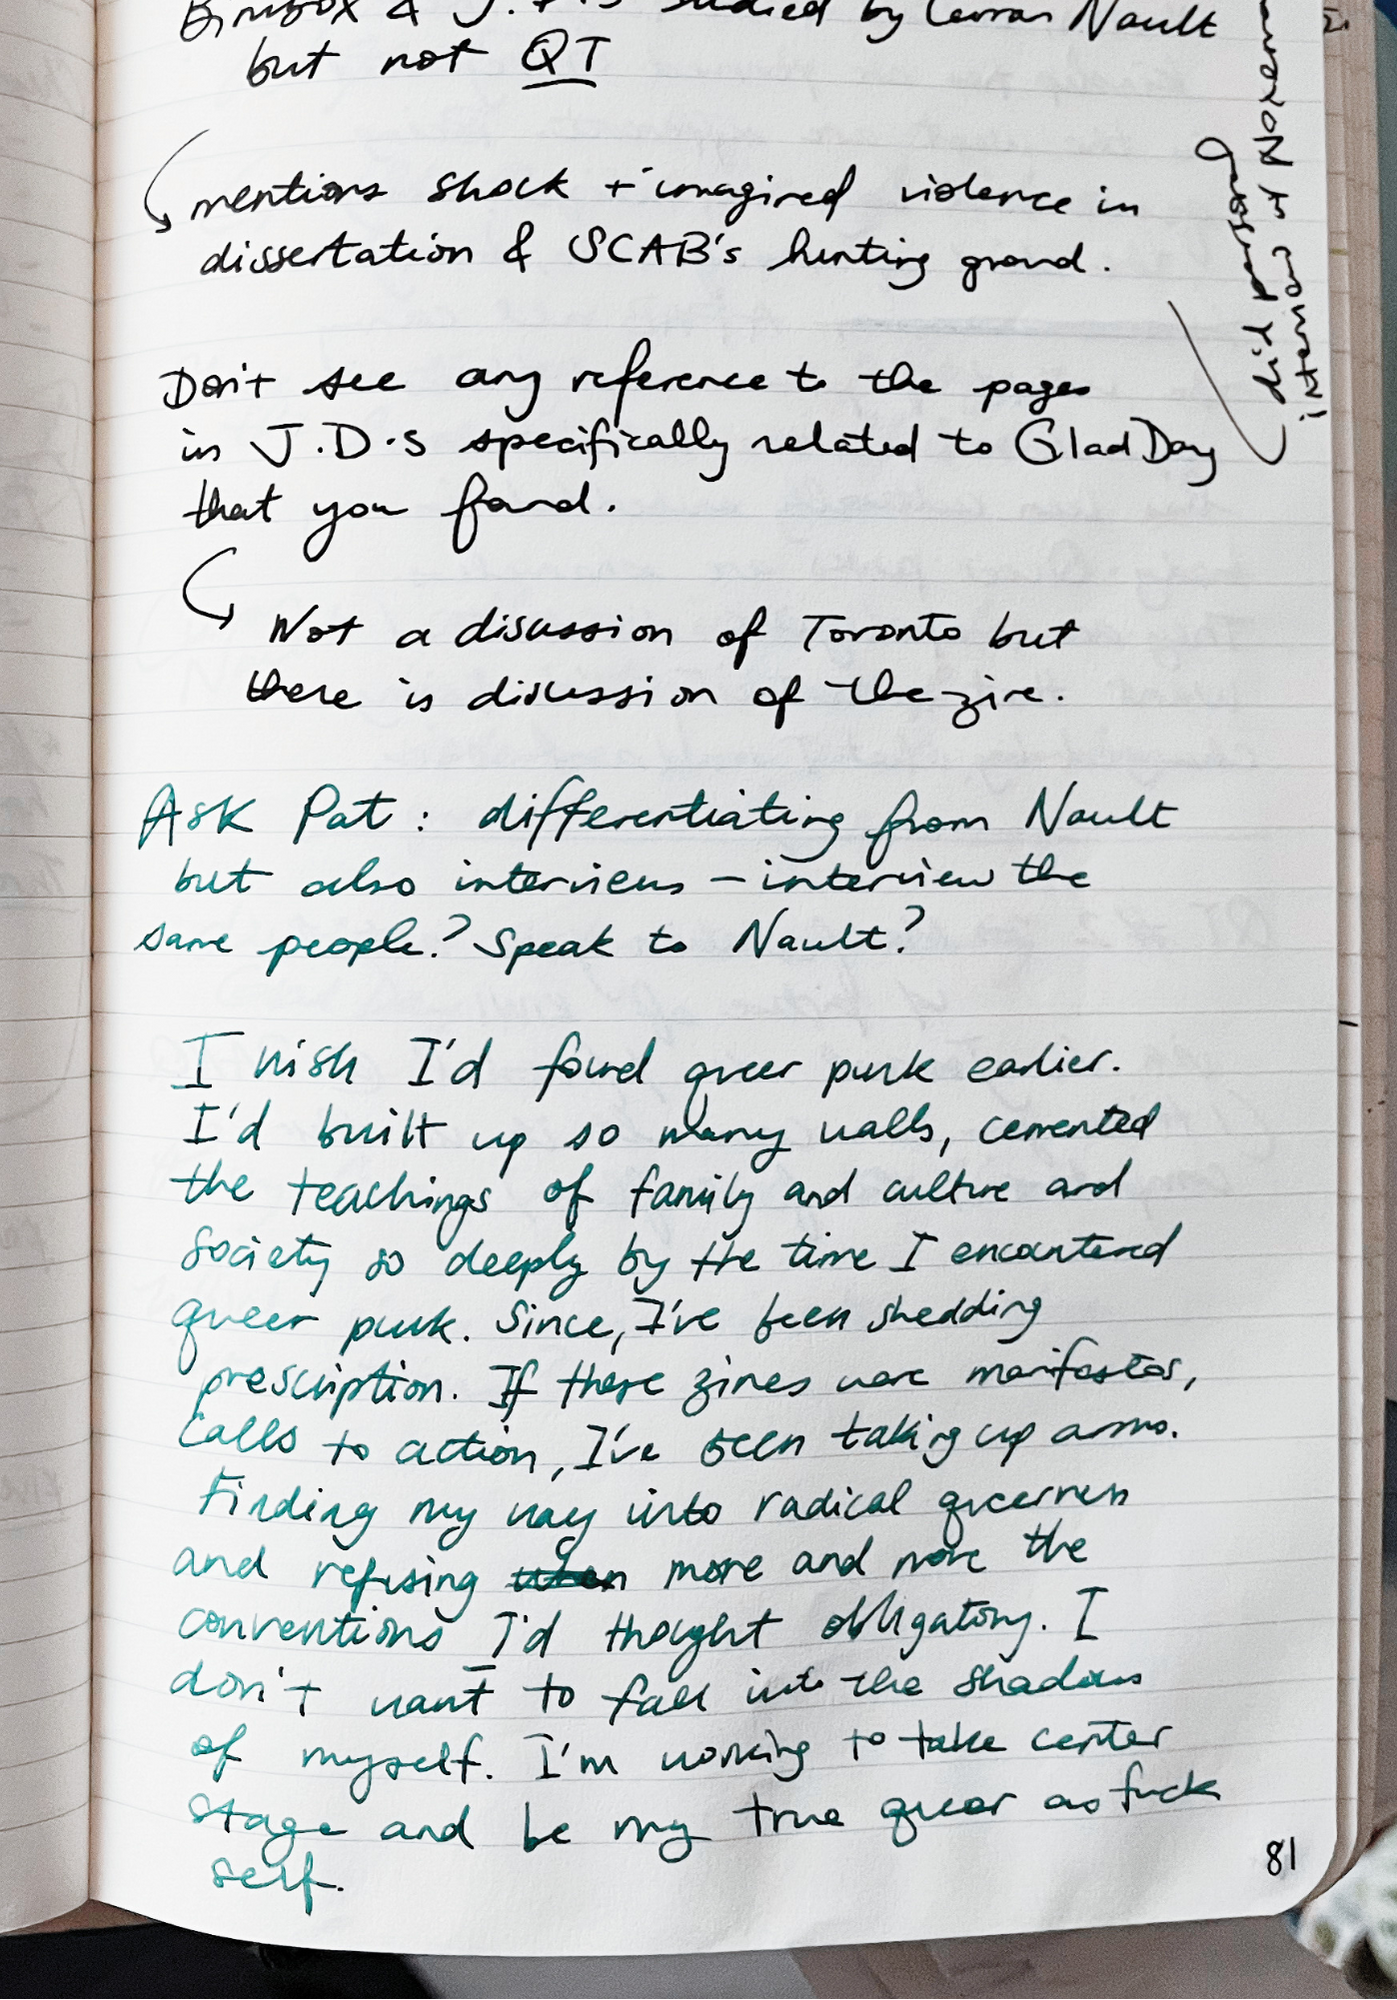 & J.D.s studied by Curran Nault
but not QT
mentions shock + imagined violence in
dissertation & SCAB's hunting ground.
did personal
interviews w/
Don't see any reference to the pages
in J.D.s specifically related to Glad Day
that you found.
Not a discussion of Toronto but
there is discussion of the zine.
Ask Pat: differentiating from Nault
but also interviews – interview the
same people? Speak to Nault?
I wish I'd found queer punk earlier.
I'd built up so many walls, cemented
the teachings of family and culture and
society so deeply by the time I encountered
queer punk. Since, I've been shedding
prescription. If these zines were manifestos,
calls to action, I've been taking up arms.
Finding my way into radical queerness
and refusing more and more the
conventions I'd thought obligatory. I
don't want to fall into the shadows
of myself. I'm working to take center
stage and be my true queer as fuck
self.
81